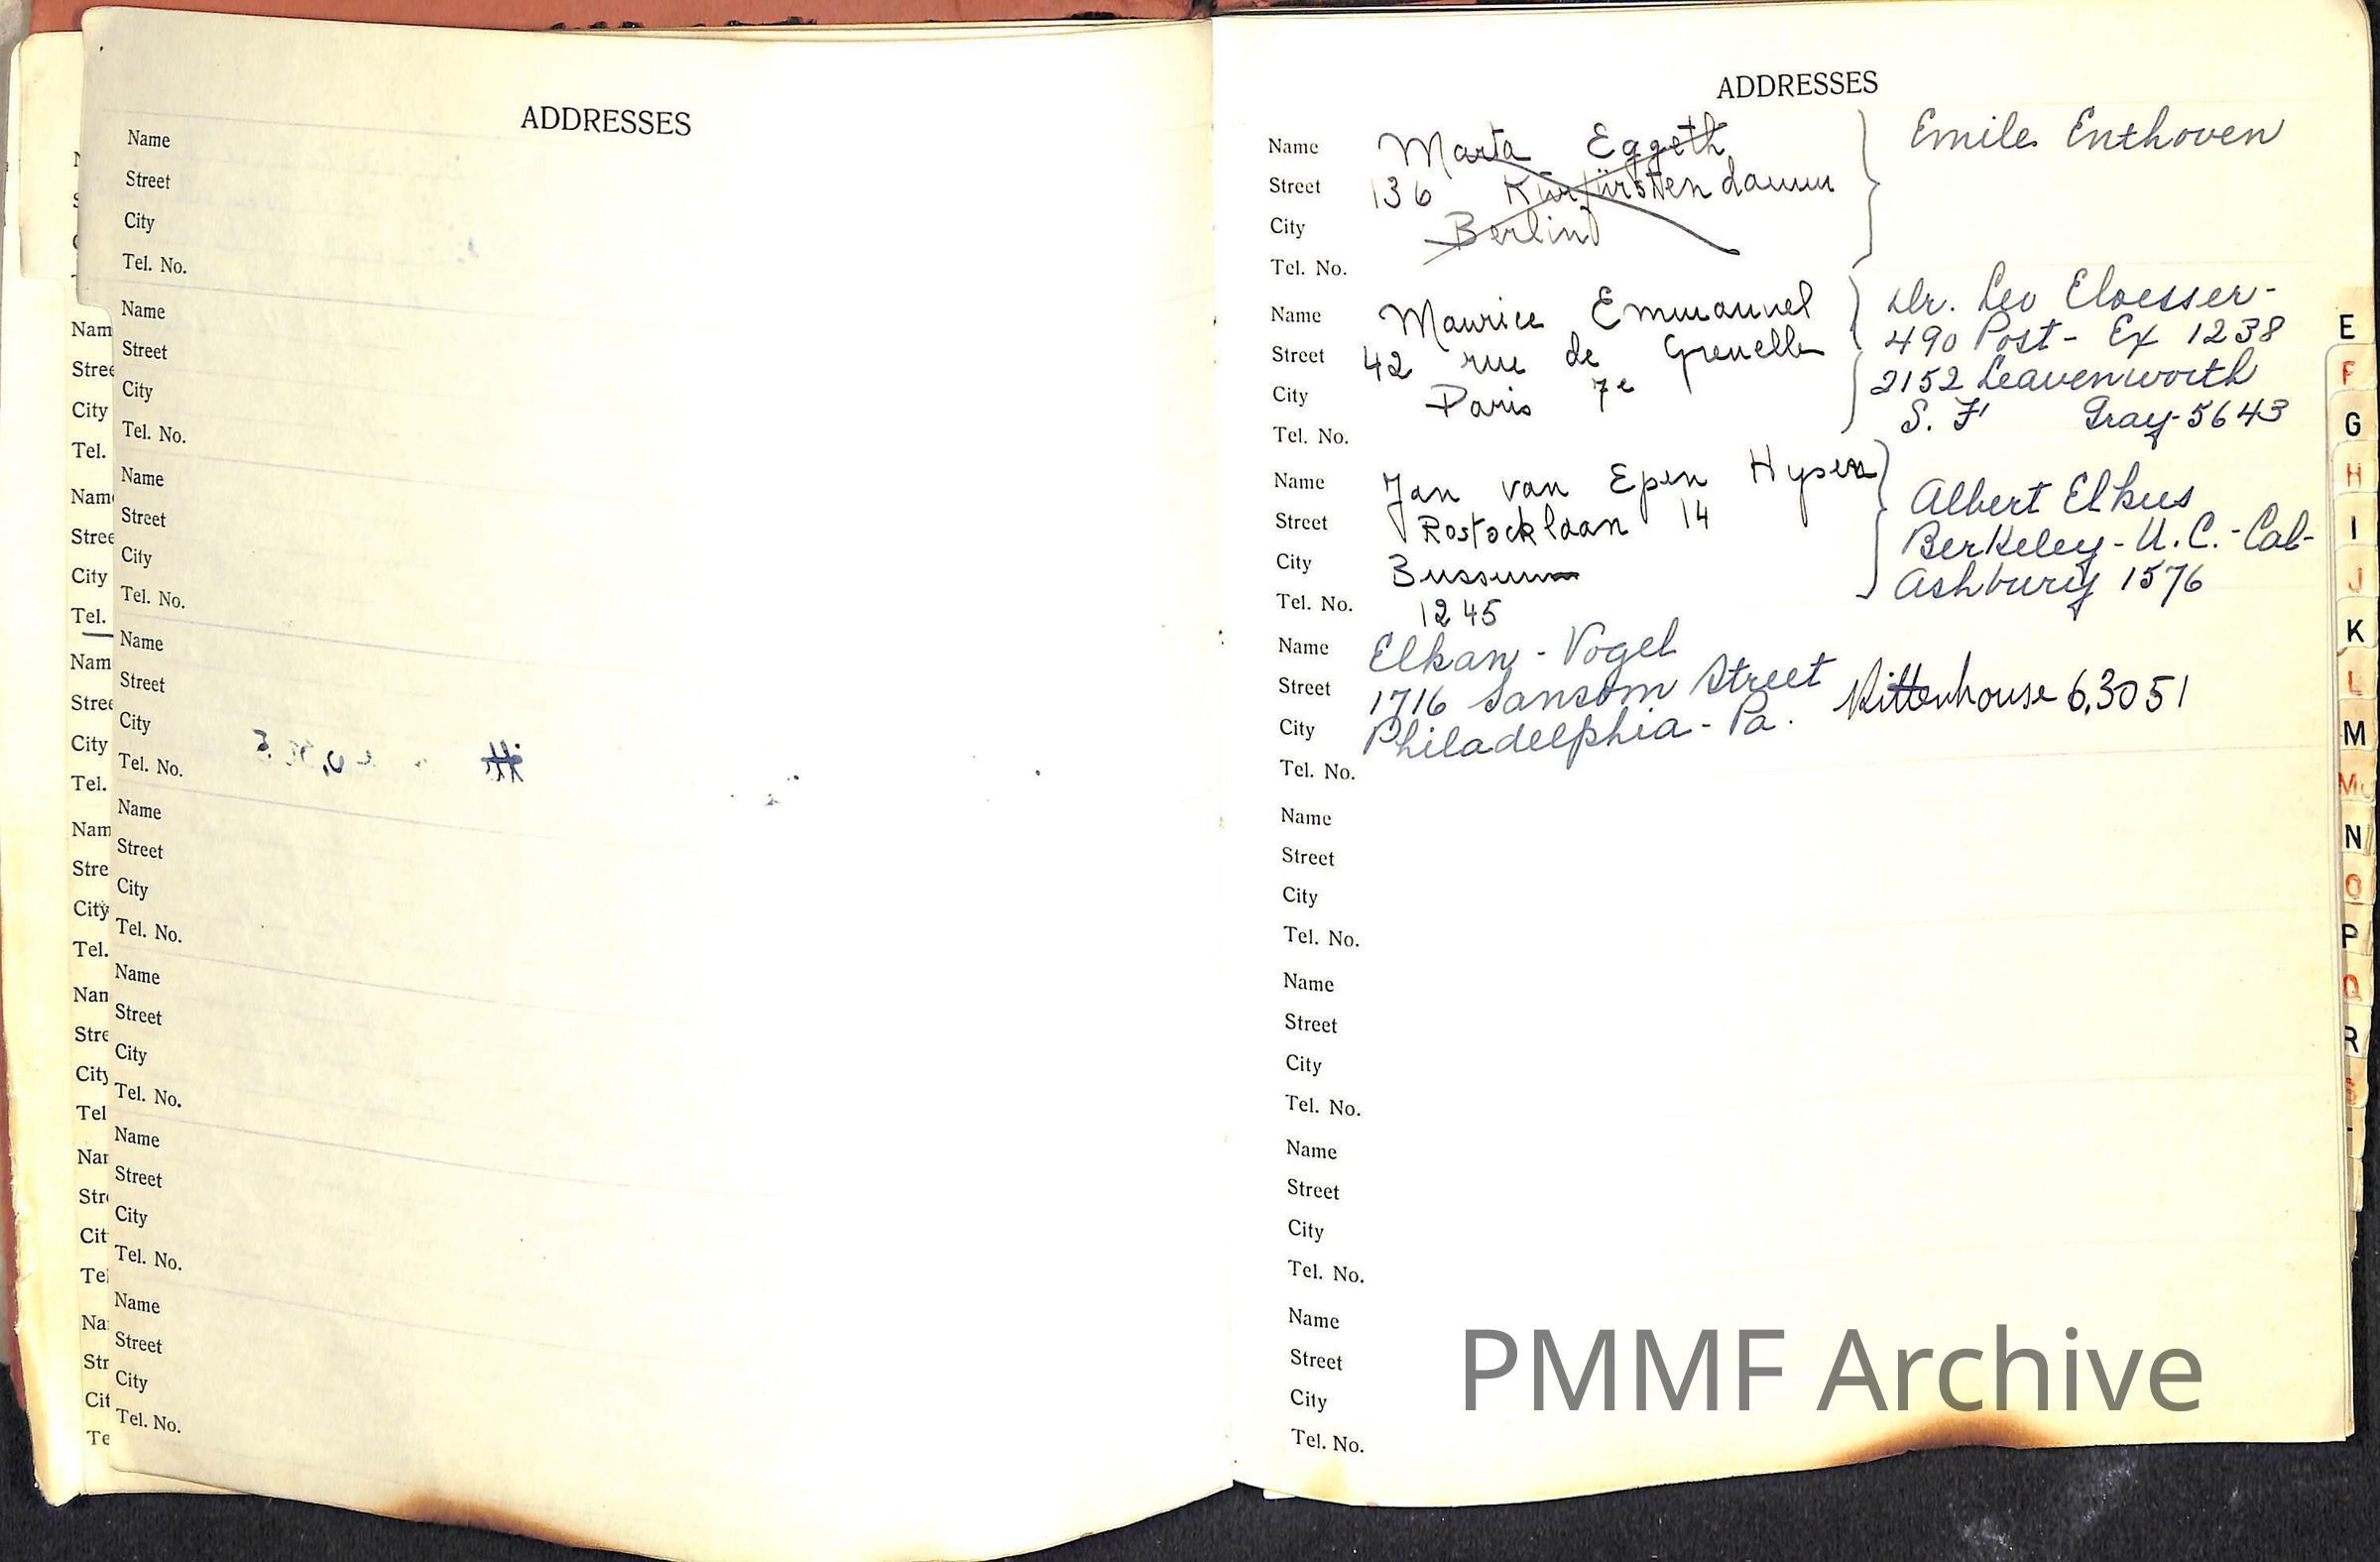 ADDRESSES
Name
Street
City
Tel. No.
Name
Street
City
Tel. No.
Name
Street
City
Tel. No.
Name
Street
City
Tel. No.
Name
Street
City
Tel. No.
Name
Street
City
Tel. No.
Name
Street
City
Tel. No.
Name
Street
City
Tel. No.
ADDRESSES
Name Marta Eggeth
Street 136 Kurfürstendamm
City Berlin
Tel. No.
Emile Enthoven
Name Maurice Emmanuel
Street 42 rue de Grenelle
City Paris 7e
Tel. No.
Dr. Leo Eloesser-
490 Post- Ex 1238
2152 Leavenworth
S. F Gray-5643
Name Jan van Epen Hysen
Street Rostocklaan 14
City Bussum
Tel. No. 1245
Albert Elkus
Berkeley-U.C.-Cal-
Ashbury 1576
Name Elkan-Vogel
Street 1716 Sansom Street Rittenhouse 6,3051
City Philadelphia-Pa.
Tel. No.
Name
Street
City
Tel. No.
Name
Street
City
Tel. No.
Name
Street
City
Tel. No.
Name
Street
City
Tel. No.
E
F
G
H
I
J
K
L
M
Mc
N
O
P
Q
R
S
PMMF Archive